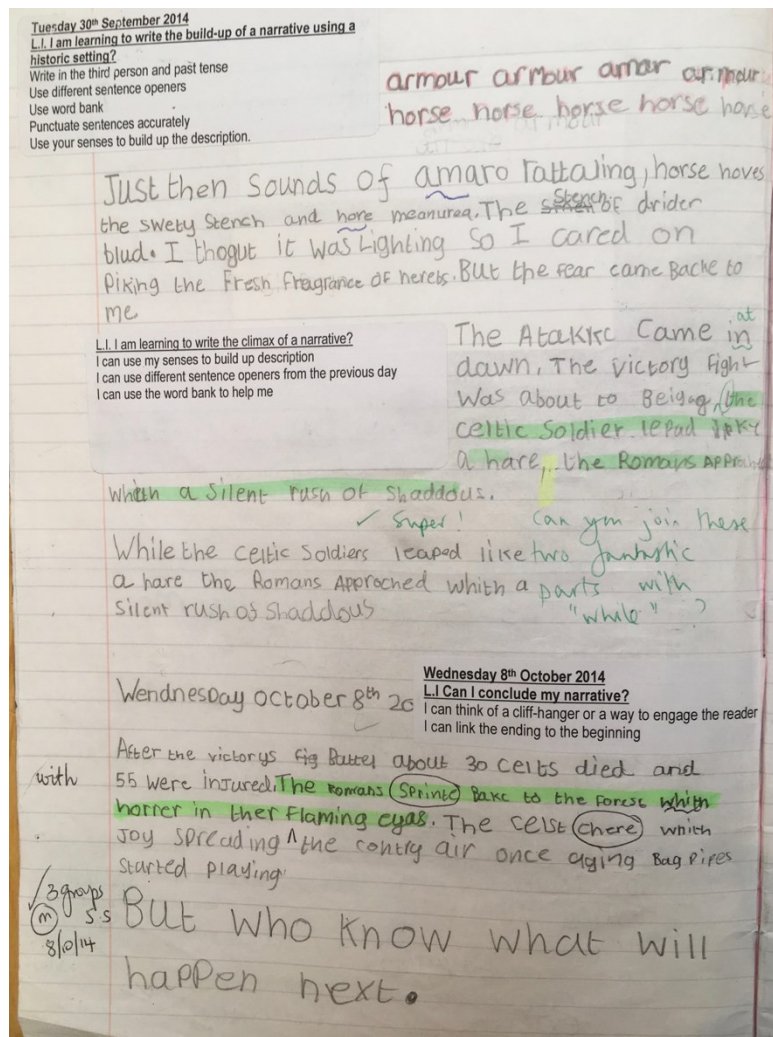 Tuesday 30th September 2014
L.I. I am learning to write the build-up of a narrative using a
historic setting?
Write in the third person and past tense
Use different sentence openers
Use word bank
Punctuate sentences accurately
Use your senses to build up the description.
armour armour amar armour
horse horse horse horse horse
Just then sounds of amaro rattaling, horse hoves
the swety stench and hore meanurea. The stench of drider
blud. I thogut it was Lighting so I cared on
Piking the Fresh fragrance of herebs. But the fear came Backe to
me
L.I. I am learning to write the climax of a narrative?
I can use my senses to build up description
I can use different sentence openers from the previous day
I can use the word bank to help me
The Atakkc Came in at
dawn. The victory fight
was about to Beigag, the
celtic Soldier lepad
a hare, the Romans Approach
whith a Silent rush of Shaddous.
✓ Super! Can you join these
two fantastic
parts with
"while" ?
While the celtic Soldiers leaped like
a hare the Romans Approched whith a
Silent rush of Shaddous
Wednesday 8th October 2014
L.I Can I conclude my narrative?
I can think of a cliff-hanger or a way to engage the reader
I can link the ending to the beginning
Wendnesday october 8th 20
After the victorys fig Battel about 30 celts died and
with
55 were injured. The Romans Sprinte Bake to the forest whith
horrer in ther Flaming eyas. The celst chere which
Joy spreading ^ the contry air once aging Bag Pipes
started playing
✓ 3 groups
m s.s
8/10/14
But who know what will
happen next.